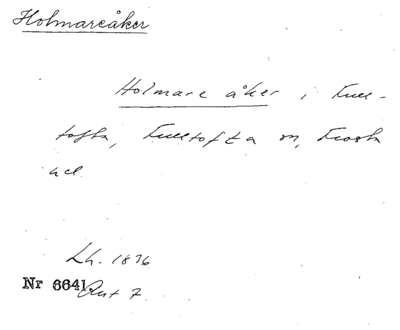 Holmareåker
Holmare åker i Full-
tofta, Fulltofta sn, Frosta
hd.
Lh. 1836
Nr 6641 Akt 7.